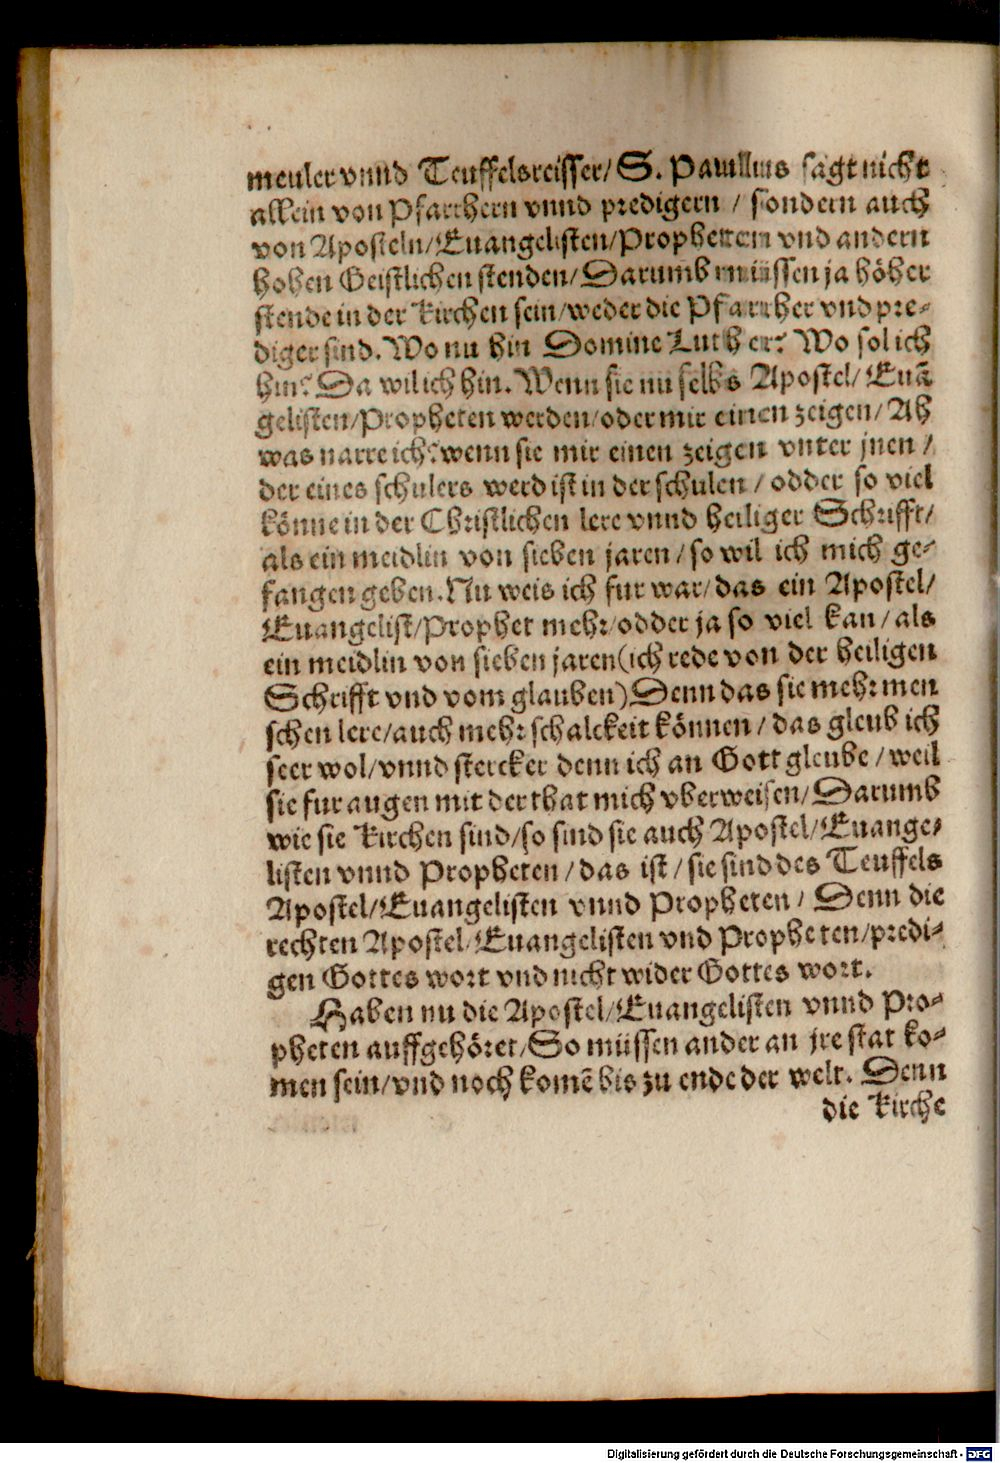 meuler vnnd Teuffelsreisser/ S. Paullus sagt nicht
allein von Pfarrhern vnnd predigern / sondern auch
von Aposteln/Euangelisten/Propheten vnd andern
hohen Geistlichen stenden/Darumb müssen ja höher
stende in der Kirchen sein/weder die Pfarrher vnd pre-
diger sind. Wo nu hin Domine Luther? Wo sol ich
hin? Da wil ich hin. Wenn sie nu selbs Apostel/ Euã
gelisten/Propheten werden/oder mir einen zeigen/ Ah
was narre ich? wenn sie mir einen zeigen vnter jnen /
der eines schulers werd ist in der schulen / odder so viel
könne in der Christlichen lere vnnd heiliger Schrifft/
als ein meidlin von sieben jaren / so wil ich mich ge-
fangen geben. Nu weis ich fur war/ das ein Apostel/
Euangelist/Prophet mehr/odder ja so viel kan / als
ein meidlin von sieben jaren(ich rede von der heiligen
Schrifft vnd vom glauben)Denn das sie mehr men
schen lere/auch mehr schalckeit können / das gleub ich
seer wol/vnnd stercker denn ich an Gott gleube / weil
sie fur augen mit der that mich vberweisen/Darumb
wie sie Kirchen sind/so sind sie auch Apostel/Euange-
listen vnnd Propheten / das ist / sie sind des Teuffels
Apostel/Euangelisten vnnd Propheten / Denn die
rechten Apostel/Euangelisten vnd Propheten/predi-
gen Gottes wort vnd nicht wider Gottes wort.
Haben nu die Apostel/Euangelisten vnnd Pro-
pheten auffgehöret/So müssen ander an jre stat ko-
men sein/vnd noch komẽ bis zu ende der welt. Denn
die Kirche
Digitalisierung gefördert durch die Deutsche Forschungsgemeinschaft - DFG